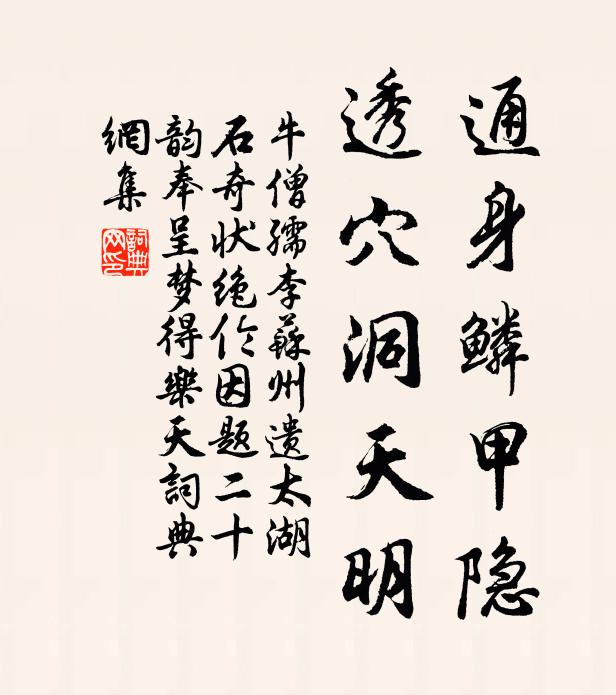 通身鳞甲隐
透穴洞天明
牛僧孺李蘇州遗太湖
石奇状绝伦因题二十
韵奉呈梦得樂天詞典
網集
詞典
网印